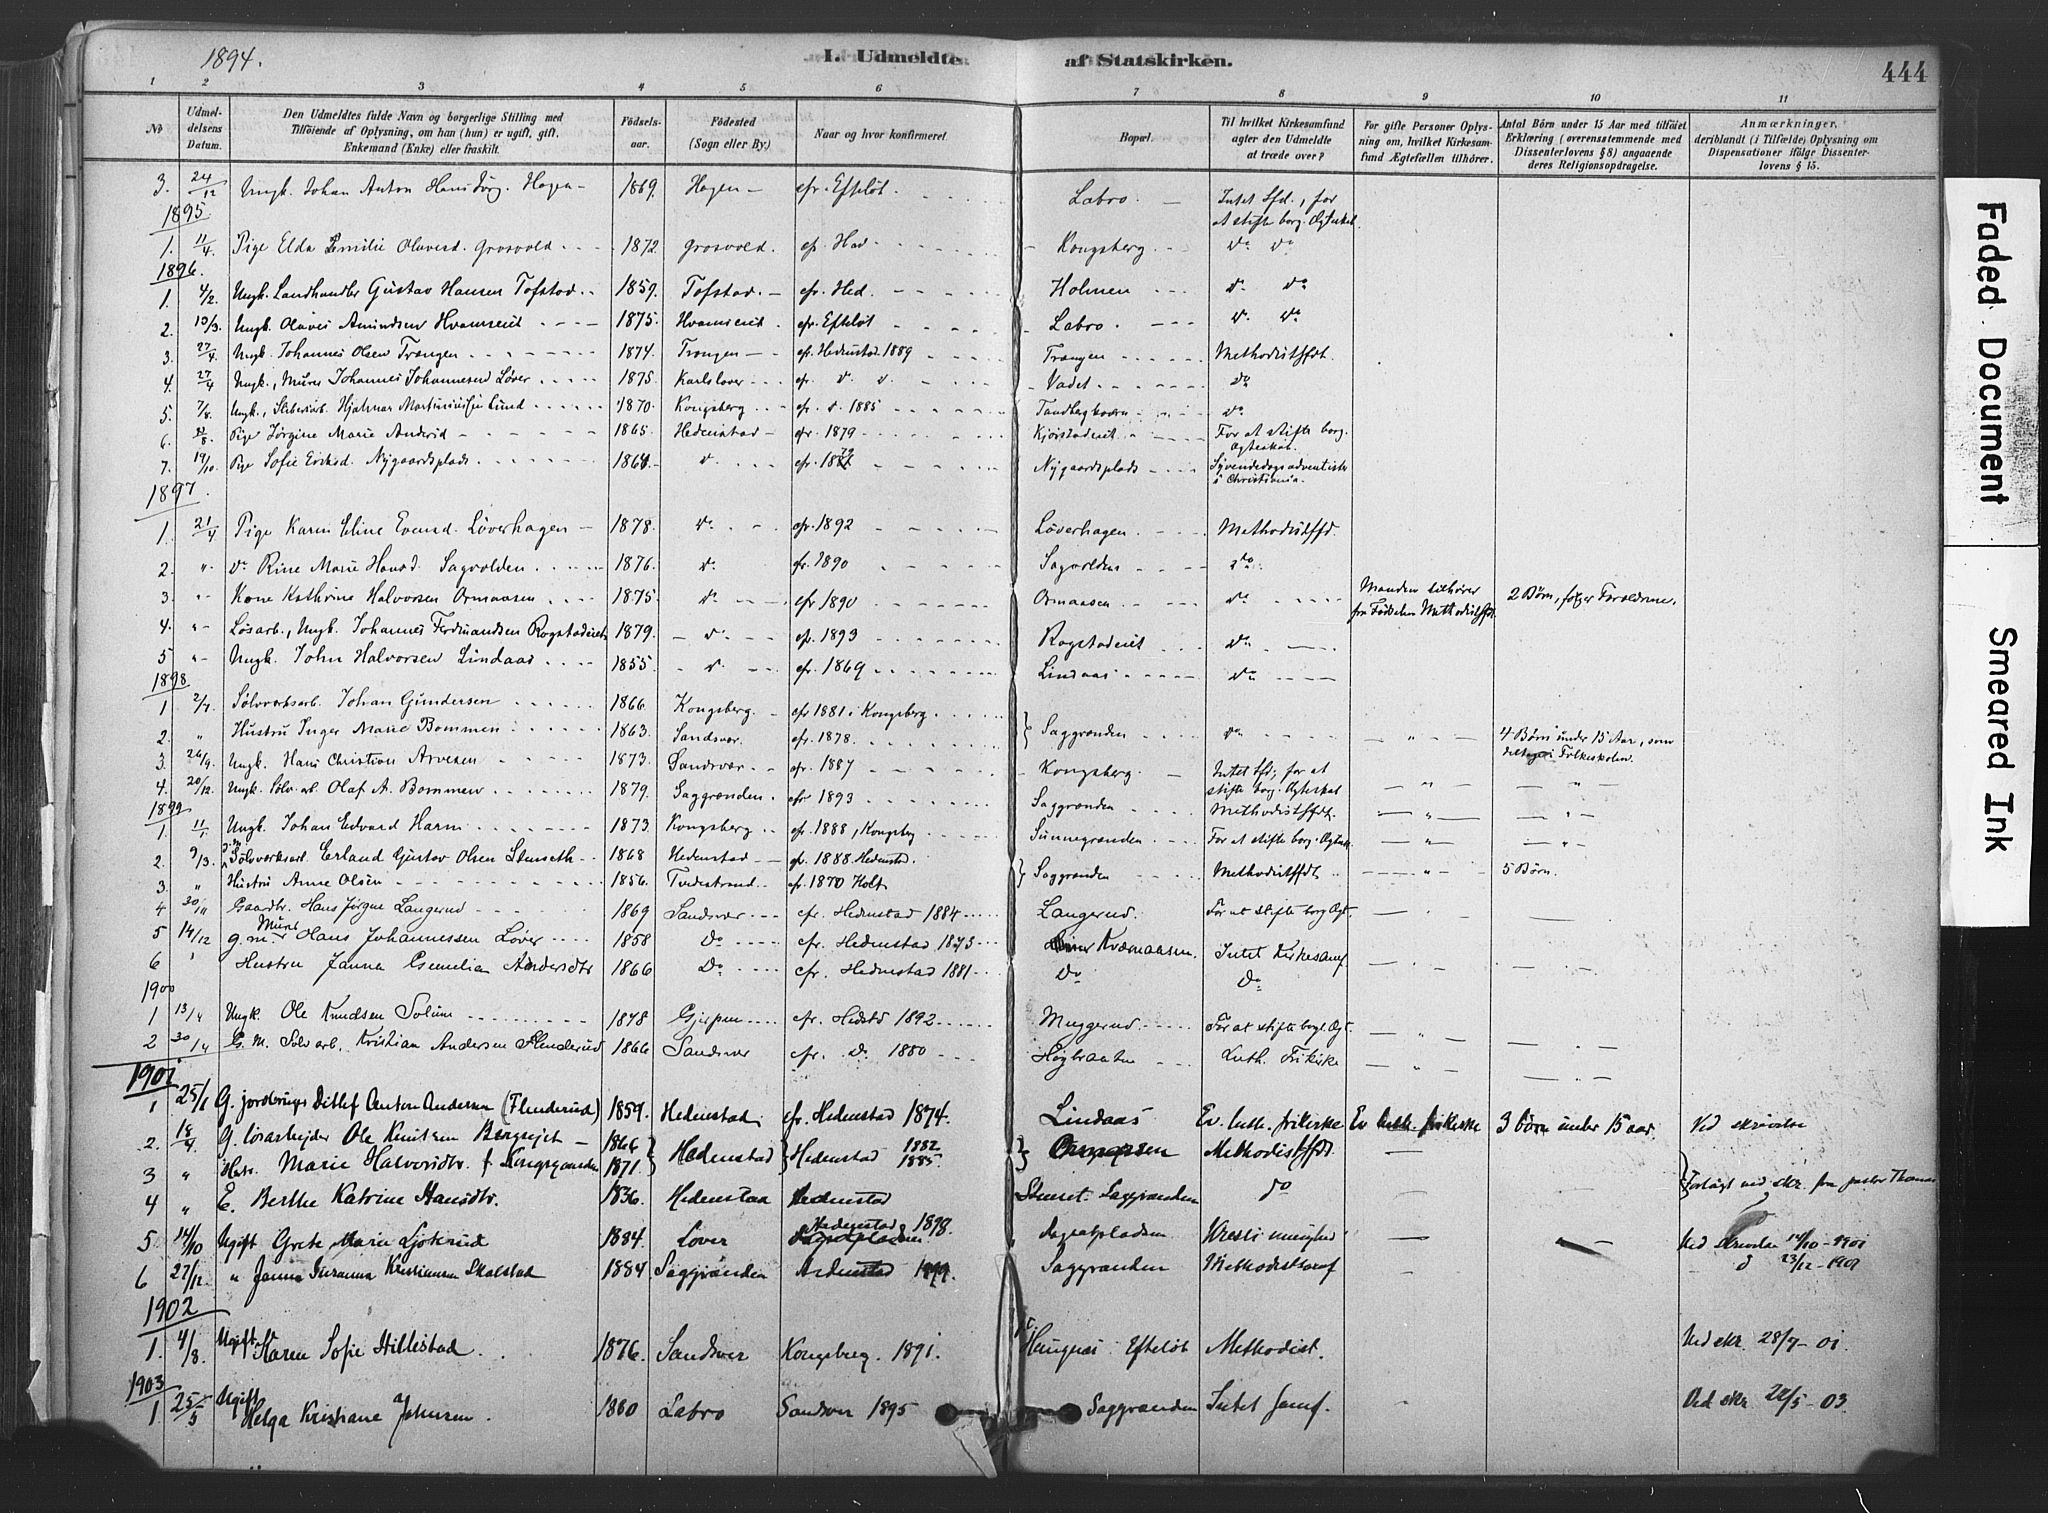 1894.
I. Udmeldte af Statskirken.
444
1 2 3 4 5 6 7 8 9 10 11
No
Udmeldelsens Datum.
Den Udmeldtes fulde Navn og borgerlige Stilling med Tilføiende af Oplysning, om han (hun) er ugift, gift, Enkemand (Enke) eller fraskilt.
Fødselsaar.
Fødested (Sogn eller By.)
Naar og hvor konfirmeret.
Bopæl.
Til hvilket Kirkesamfund agter den Udmeldte at træde over?
For gifte Personer Oplysning om, hvilket Kirkesamfund Ægtefællen tilhører.
Antal Børn under 15 Aar med tilføiet Erklæring (overensstemmende med Dissenterlovens § 8) angaaende deres Religionsopdragelse.
Anmærkninger, deriblandt (i Tilfælde) Oplysning om Dispensationer ifølge Dissenterlovens § 15.
3. 24/12 Ungk. Johan Anton HansJørg. Hagen 1869. Hagen cfr. Efteløt. Labro. Intet Sfd., for at stifte borg. Ægteskab.
1895
1. 11/4 Pige Elda Emilie Olavesd. Grosvold 1872. Grosvold. cfr. Hed. Kongsberg. do do
1896.
1. 4/2. Ungk. Landhandler Gustav Hansen Tofstad 1859. Tofstad. cfr. Hed. Holmen do do
2. 13/3. Ungk. Olaves Amundsen Hvamseiet 1875. Hvamseiet cfr. Efteløt Labro. do do
3. 27/4. Ungk. Johannes Olsen Trangen 1874. Trangen cfr. Hedenstad. 1889 Trangen Methodistsfdt.
4. 27/4 Ungk., Murer Johannes Johannesend Løver 1875. Karlsløver cfr. d. d. Vadet do
5. 7/8. Ungk., Sliberiarb. Hjalmar Lund 1870. Kongsberg cfr. d. 1885 Tandbergkvern do
6. 11/8. Pige Jørgine Marie Andersd 1865. Hedenstad cfr. 1879 Kjørstadeiet For at stifte borg. Ægteskab.
7. 19/10. Pige Sofie Eriksd. Nygaardsplads 1864 d. cfr. 1879 Nygaardsplads Syvendedagsadventister i Christiania.
1897.
1. 21/4 Pige Karen Eline Evensd. Løverhagen 1878. do cfr. 1892 Løverhagen Methodistsfd.
2. " do Rine Marie Hansd. Sagvolden 1876. do cfr. 1890 Sagvolden do
3. " Kone Kathrine Halvorsen Ormaasen 1875. do cfr 1890 Ormaasen do Manden tilhører fra Fødselen Methodistsfdt. 2 Børn, følger Forældrene.
4. " Løsarb., Ungk. Johannes Ferdinandsen Rogstadeiet 1879. d. cfr. 1893 Rogstadeiet do
5 " Ungk. John Halvorsen Lindaas 1855 d. cfr. 1869 Lindaas do
1898
1 2/7. Sølvverksarb. Johan Gundersen 1866. Kongsberg cfr 1881 i Kongsberg
2. " Hustru Inger Marie Bommen 1863. Sandsvær. cfr. 1878. Saggrenden do 4 Børn under 15 Aar, som deltager i Folkeskolen.
3. 26/9. Ungk. Hans Christian Arvesen 1873. Sandsvær cfr. 1887 Kongsberg. Intet Sfd; for at stifte borg. Ægteskab
4. 20/12. Ungk. Sølv.arb. Olaf A. Bommen 1879. Saggrenden cfr 1893 Saggrenden Methodistsfdt.
1899
1. 11/1 Ungk. Johan Edvard Harm 1873. Kongsberg cfr. 1888, Kongsbg Sunnegrenden. For at stifte borg. Ægtesk.
2. 9/3. Sølvverksarb. Erland Gustav Olsen Stenseth 1868 Hedenstad cfr. 1888. Hedenstad.
3. " Hustru Anne Olsen 1856. Tvedestrand cfr. 1870 Holt Saggrenden Methodistsfdt. 5 Børn.
4 30/11 Gaardbr. Hans Jørgen Langerud 1869 Sandsvær cfr. Hedenstad 1884 Langerud. For at stifte borg Ægt.
5 14/12 g.m. Murer Hans Johannessen Løver 1858 Do cfr. Hedenstad 1873 Kværnaasen. Intet Kirkesamf.
6 " Hustru Janna Andersdtr 1866 Do cfr. Hedenstad 1881 Do Do
1900
1 13/4 Ungk. Ole Knudsen Solum 1878 Gjerpen cfr. Hedstd 1892 Muggerud For at stifte borgl. Ægt.
2 30/4 G. M. Sølv arb. Kristian Andersen Flenderud 1866 Sandsvær cfr. Do 1880 Høgbraaten Luth. Frikirke
1901
1 25/1 G. Ditlef Anton Andersen (Flenderud) 1859. Hedenstad cfr. Hedenstad 1874. Lindaas Ev. luth. frikirke Ev. luth. frikirke 3 børn under 15 aar. Ved skrivelse
2. 18/4 G. løsarbejder Ole Knutsen Bergsejet 1866 Hedenstad Hedenstad 1882 Ormaasen Methodistsfdt.
3 " Hstr. Marie Halvorsdtr. f. Kongsgaarden 1871. 1885.
4 " E. Berthe Katrine Hansdtr. 1836. Hedenstad Hedenstad Stenset. Saggrenden do Forlagt ved skr. fra pastor Thomas
5 14/10 Ugift Grete Marie Ljøterud 1884. Løver Hedenstad 1898. do Ved skrivelse 14/10-1901
6 27/12. " Janna Susanna Kristiansen Skolstad 1884 Saggrenden Hedenstad 1899. Saggrenden Methodistsamf d 23/12-1901
1902
1. 4/8. Ugift Karen Sofie Hillestad 1876. Sandsver Kongsberg. 1891. Efteløt Methodist. Ved skr. 28/7-01.
1903
1. 25/5 Ugift Helga Kristiane Johnsen. 1880 Labro Sandsver 1895 Saggrenden Intet Samf. Ved skr 22/5-03
Faded Document
Smeared Ink